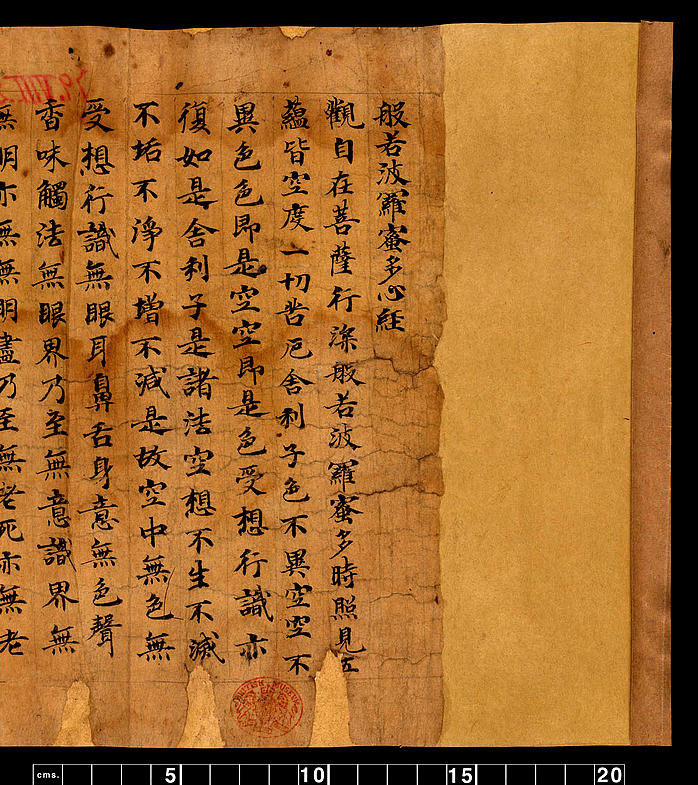 般若波羅蜜多心経
觀自在菩薩行深般若波羅蜜多時照見五
蘊皆空度一切苦厄舍利子色不異空空不
異色色即是空空即是色受想行識亦
復如是舍利子是諸法空想不生不滅
不垢不淨不增不減是故空中無色無
受想行識無眼耳鼻舌身意無色聲
香味觸法無眼界乃至無意識界無
無明亦無無明盡乃至無老死亦無老
cms. 5 10 15 20